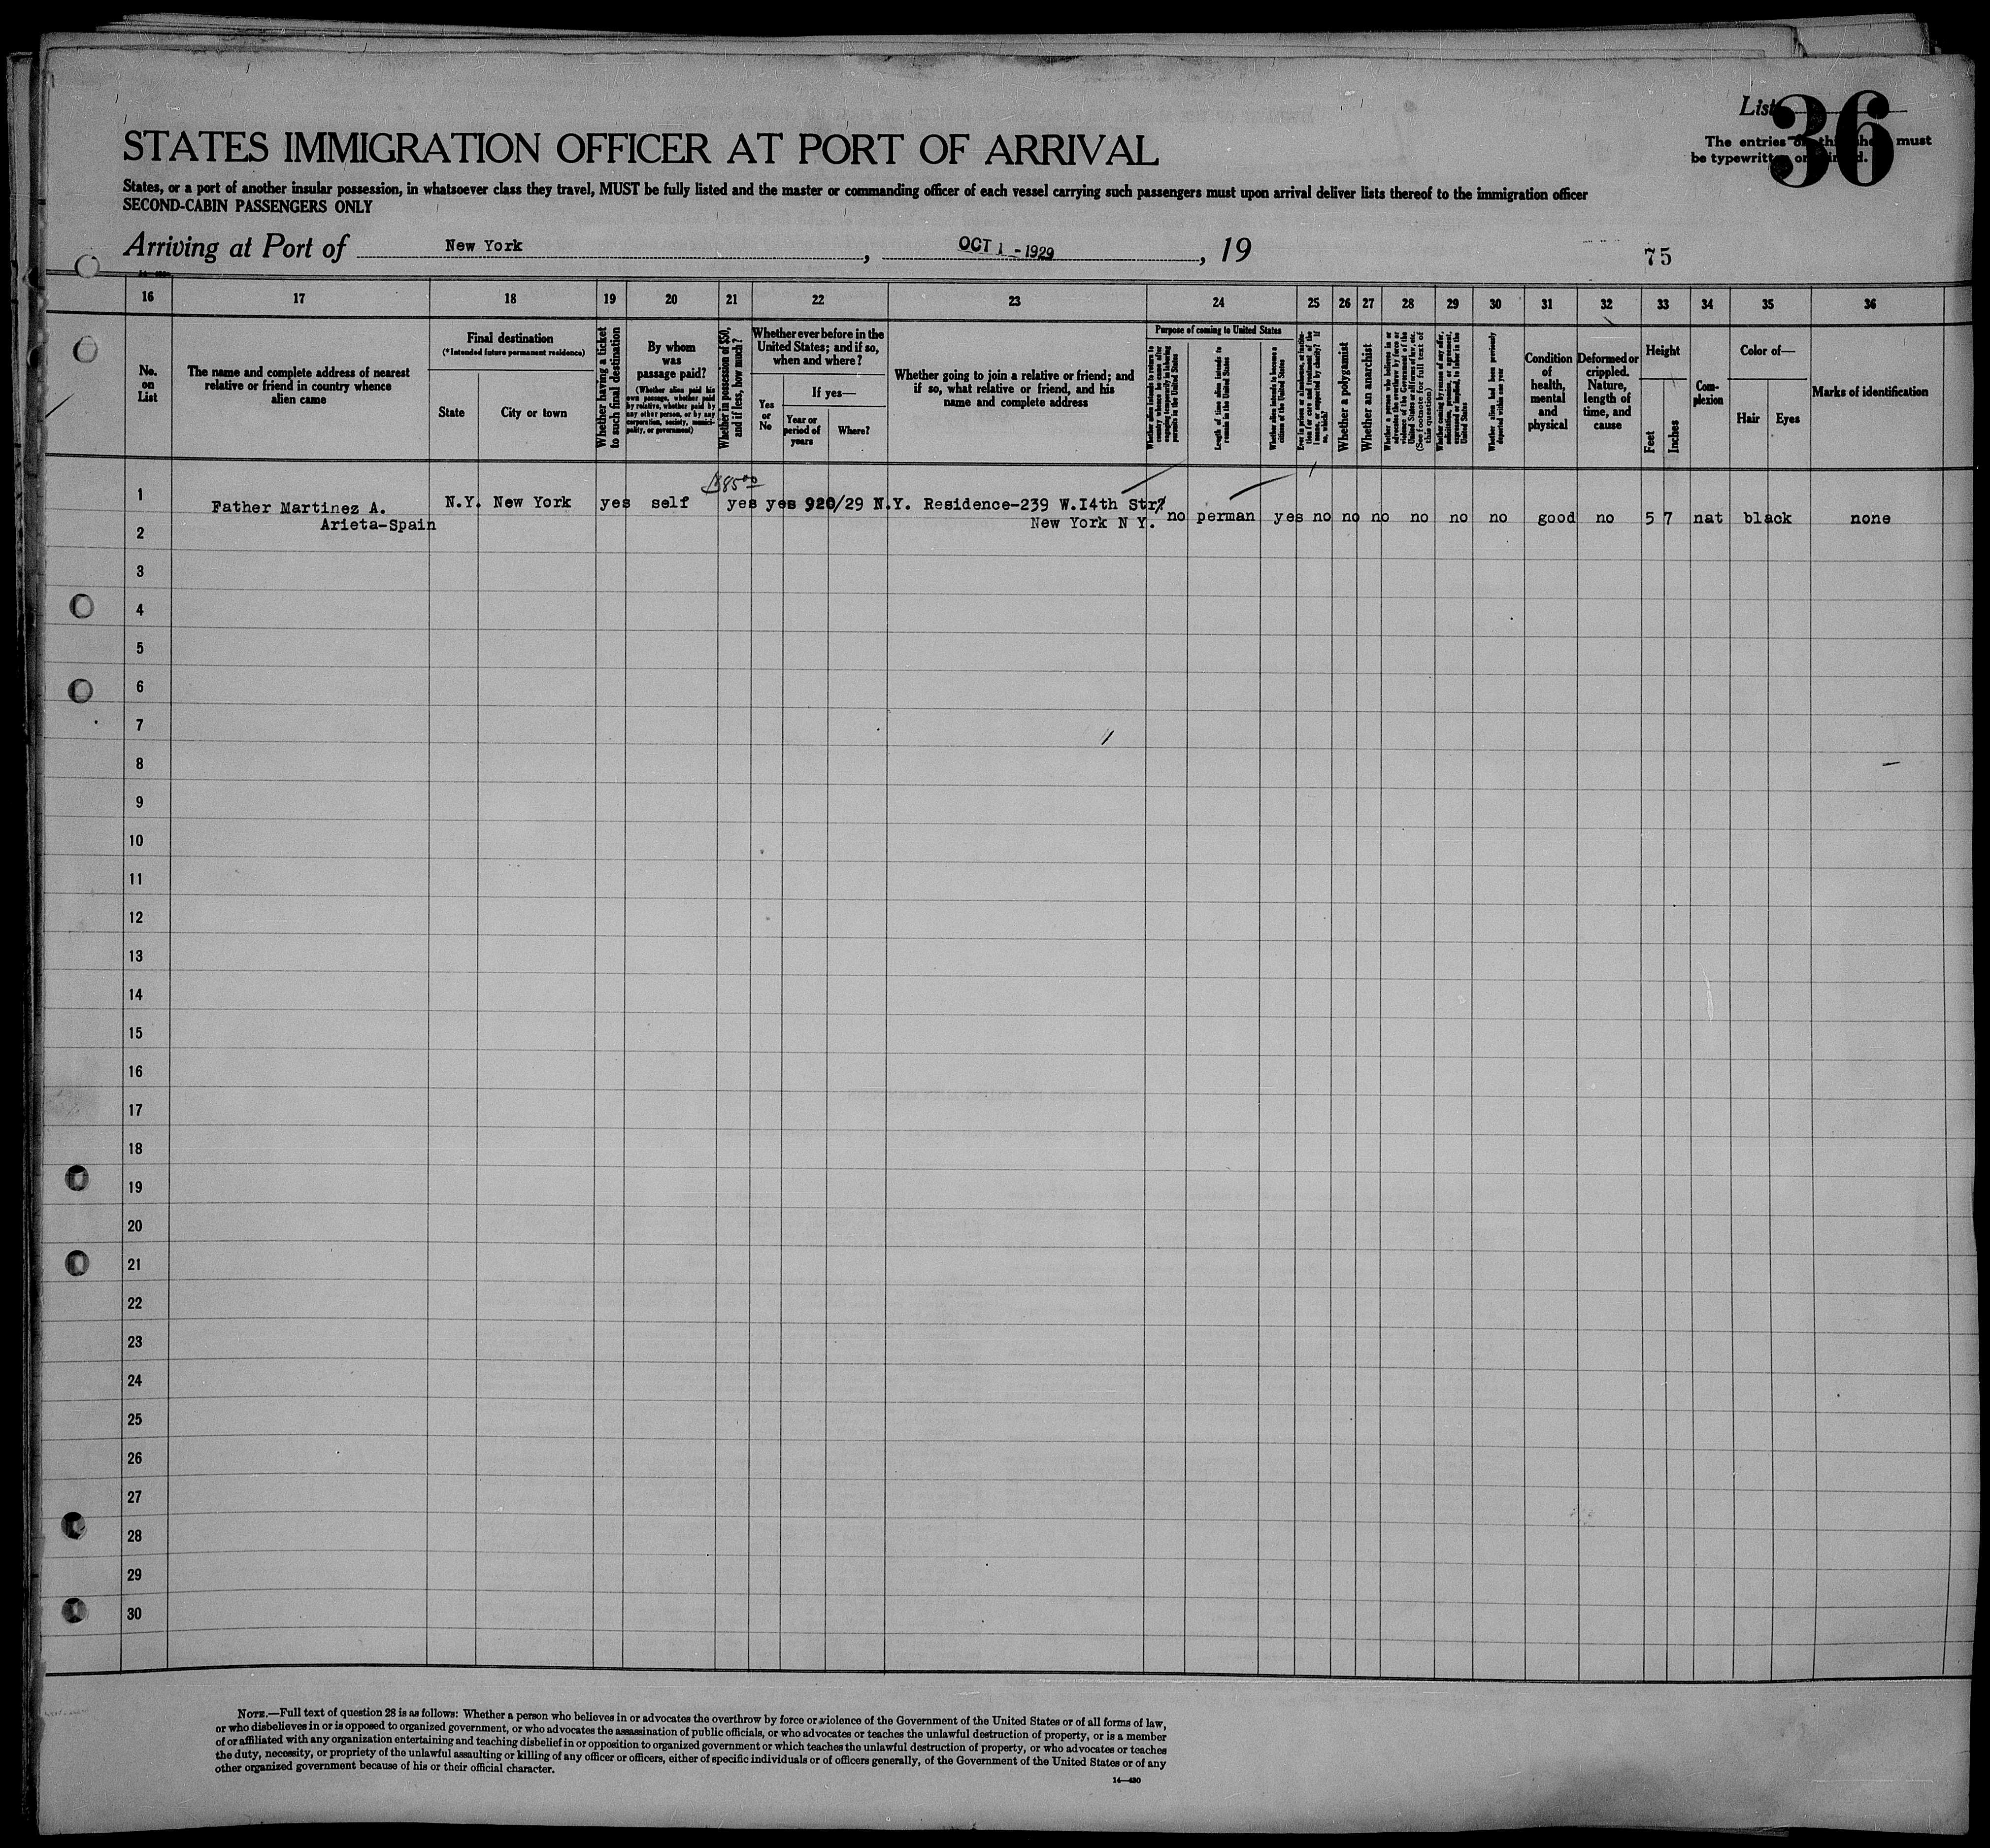 List 36
The entries on this sheet must
be typewritten or printed.
STATES IMMIGRATION OFFICER AT PORT OF ARRIVAL
States, or a port of another insular possession, in whatsoever class they travel, MUST be fully listed and the master or commanding officer of each vessel carrying such passengers must upon arrival deliver lists thereof to the immigration officer
SECOND-CABIN PASSENGERS ONLY
Arriving at Port of New York, OCT 1 - 1929, 19
75
16 17 18 19 20 21 22 23 24 25 26 27 28 29 30 31 32 33 34 35 36
No.
on
List
The name and complete address of nearest
relative or friend in country whence
alien came
Final destination
(*Intended future permanent residence)
State
City or town
Whether having a ticket
to such final destination
By whom
was
passage paid?
(Whether alien paid his
own passage, whether paid
by relative, whether paid by
any other person, or by any
corporation, society, munici-
pality, or government)
Whether in possession of $50,
and if less, how much?
Whether ever before in the
United States; and if so,
when and where?
Yes
or
No
If yes—
Year or
period of
years
Where?
Whether going to join a relative or friend; and
if so, what relative or friend, and his
name and complete address
Purpose of coming to United States
Whether alien intends to return to
country whence he came after
engaging temporarily in laboring
pursuits in the United States
Length of time alien intends to
remain in the United States
Whether alien intends to become a
citizen of the United States
Ever in prison or almshouse, or institu-
tion for care and treatment of the
insane, or supported by charity? If
so, which?
Whether a polygamist
Whether an anarchist
Whether a person who believes in or
advocates the overthrow by force or
violence of the Government of the
United States or all forms of law, etc.
(See footnote for full text of
this question)
Whether coming by reason of any offer,
solicitation, promise, or agreement,
expressed or implied, to labor in the
United States
Whether alien had been previously
deported within one year
Condition
of
health,
mental
and
physical
Deformed or
crippled.
Nature,
length of
time, and
cause
Height
Feet
Inches
Com-
plexion
Color of—
Hair
Eyes
Marks of identification
$85.00
1 Father Martinez A. N.Y. New York yes self yes yes 920/29 N.Y. Residence-239 W.I4th Str.
Arieta-Spain New York N Y. no perman yes no no no no no no good no 5 7 nat black none
2
3
4
5
6
7
8
9
10
11
12
13
14
15
16
17
18
19
20
21
22
23
24
25
26
27
28
29
30
NOTE.—Full text of question 28 is as follows: Whether a person who believes in or advocates the overthrow by force or violence of the Government of the United States or of all forms of law,
or who disbelieves in or is opposed to organized government, or who advocates the assassination of public officials, or who advocates or teaches the unlawful destruction of property, or is a member
of or affiliated with any organization entertaining and teaching disbelief in or opposition to organized government or which teaches the unlawful destruction of property, or who advocates or teaches
the duty, necessity, or propriety of the unlawful assaulting or killing of any officer or officers, either of specific individuals or of officers generally, of the Government of the United States or of any
other organized government because of his or their official character.
14—430